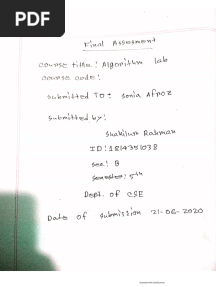 PDF
Final Assesment
course title: Algorithm lab
course code:
submitted To: Sonia Afroz
submitted by:
Shakilur Rahman
ID: 1814351038
sec: B
semester: 5th
Dept. of CSE
Date of submission 21-06-2020